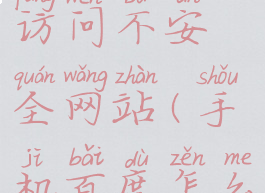 fǎng wèn bù ān
访问不安
quán wǎng zhàn shǒu
全网站(手
jī bǎi dù zěn me
机百度怎么